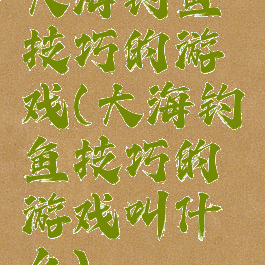 大海钓鱼
技巧的游
戏(大海钓
鱼技巧的
游戏叫什
么)